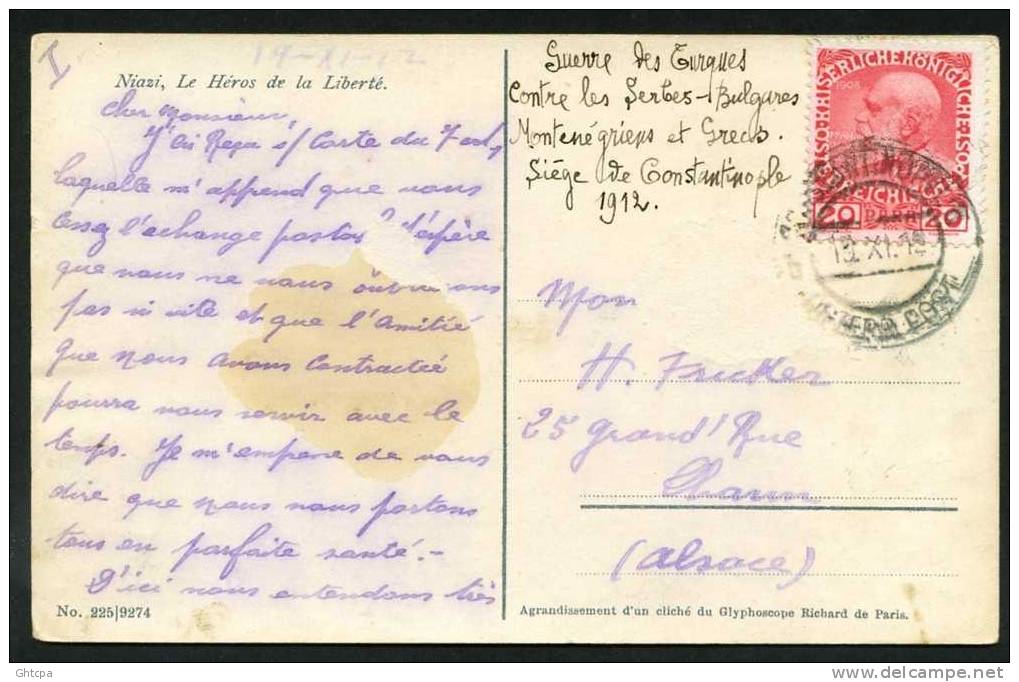 I
19-XI-12
Niazi, Le Héros de la Liberté.
Cher Monsieur,
J'ai Reçu s/ Carte du 7 ct,
laquelle m'apprend que vous
cessez l'achange postax? J'espère
que vous ne nous oublierons
pas si vite et que l'Amitié
que nous avons contractée
pourra nous servir avec le
temps. Je m'empere de vous
dire que nous nous portons
tous en parfaite santé.-
D'ici nous entendons très
No. 225|9274
Guerre des Turques
Contre les Serbes-Bulgares
Monténégriens et Grecs.
Siège de Constantinople
1912.
KAISERLICHE KÖNIGLICHE ÖSTERR
1908
20 PARA 20
19.XI.12
ÖSTERR. POST
Mon
H. Fricker
25 Grand'Rue
Thann
(Alsace)
Agrandissement d'un cliché du Glyphoscope Richard de Paris.
Ghtcpa
www.delcampe.net